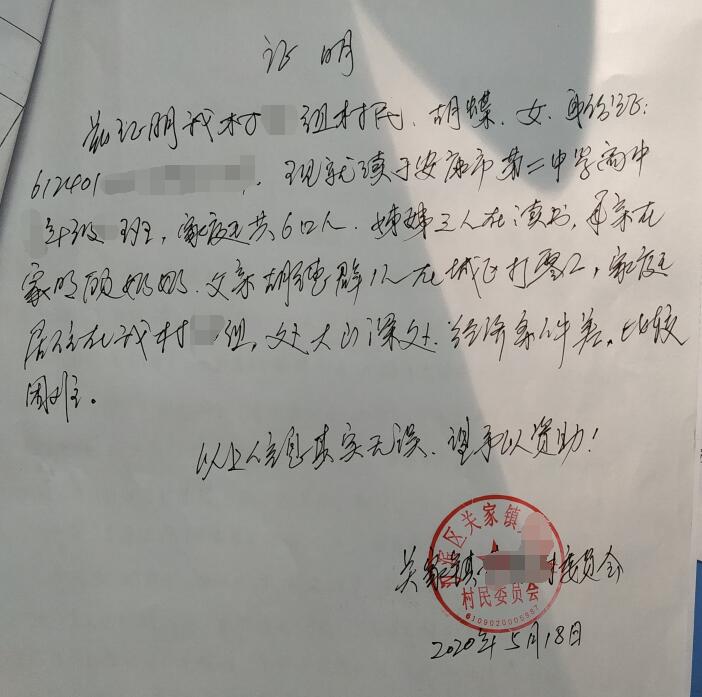 证明
兹证明我村 组村民、胡蝶、女、身份证:
612401 . 现就读于安康市第二中学高中
年级 班,家庭共6口人.姊妹三人在读书,母亲在
家照顾奶奶.父亲胡德群1人在城区打零工,家庭
居住在我村 组,处大山深处.经济条件差,比较
困难。
以上信息真实无误、望予以资助!
滨区关家镇
关家镇 村委员会
村民委员会
6109020005987
2020年5月18日